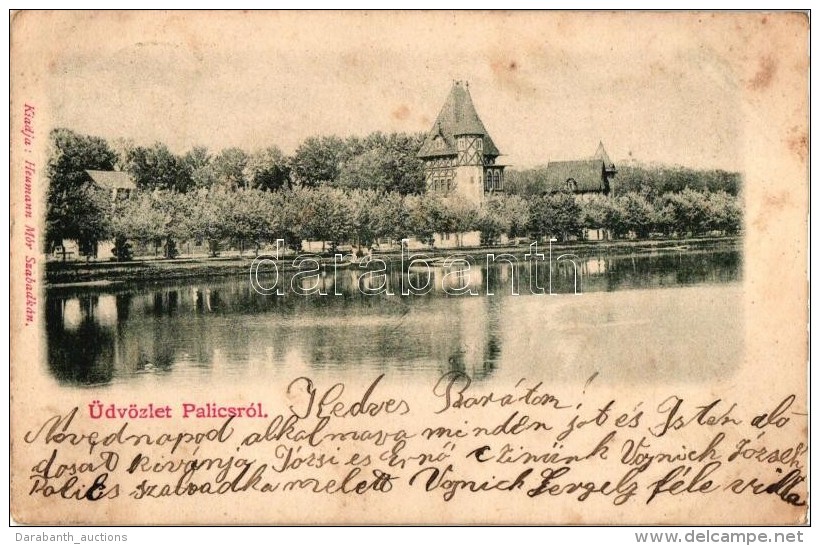 Kiadja: Heumann Mór Szabadkán.
darabanth
Üdvözlet Palicsról.
Kedves Barátom!
Névednapod alkalmava minden jot és Isten áldó
dosat kivánja Józsi és Ernö Czimünk Vojnich József
Palics szabadka melett Vojnich Gergely féle villa
Darabanth_auctions
www.delcampe.net